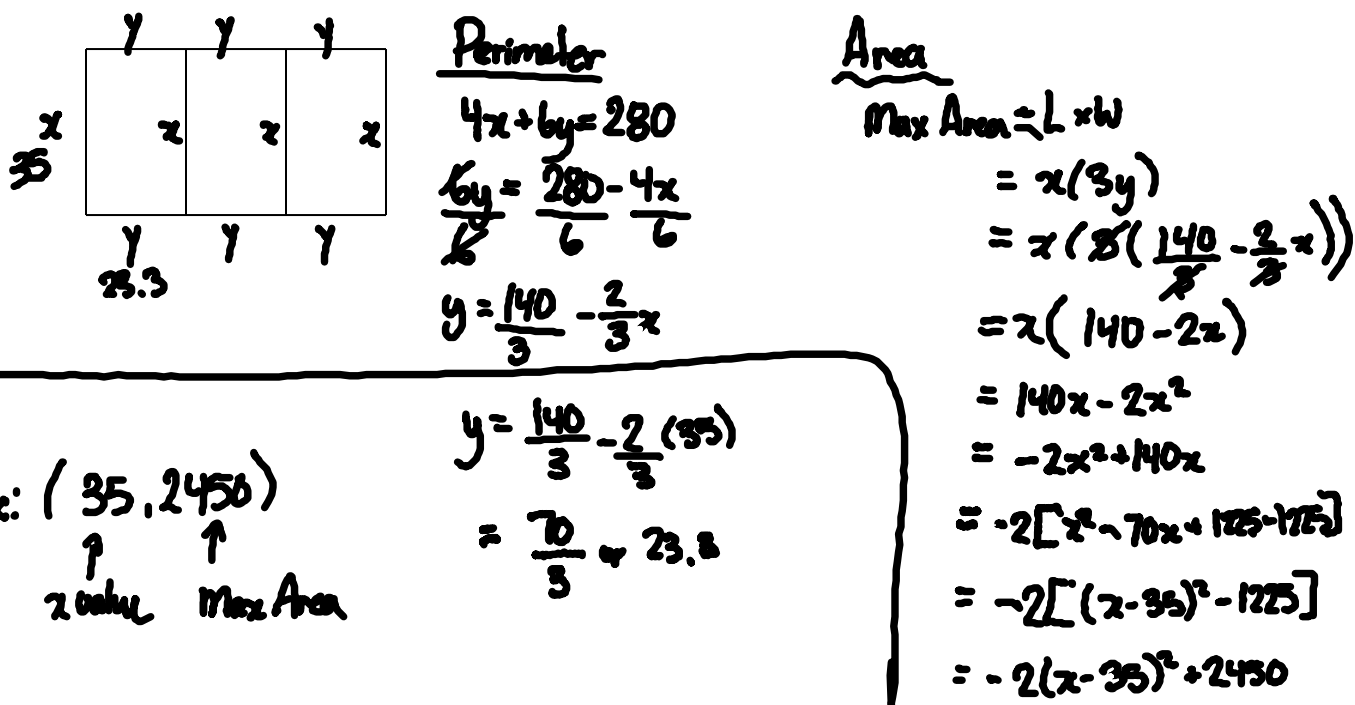 y y y
x x x x
35
y y y
23.3
Perimeter
4x + 6y = 280
6y/6 = 280/6 - 4x/6
y = 140/3 - 2/3 x
y = 140/3 - 2/3 (35)
= 70/3 or 23.3
: (35, 2450)
↑ ↑
x value Max Area
Area
Max Area = L × W
= x(3y)
= x(3(140/3 - 2/3 x))
= x(140 - 2x)
= 140x - 2x²
= -2x² + 140x
= -2[x² - 70x + 1225 - 1225]
= -2[(x - 35)² - 1225]
= -2(x - 35)² + 2450